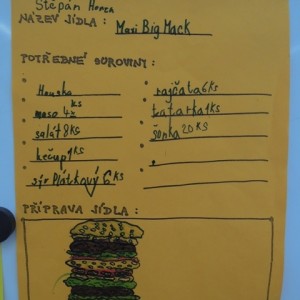 Štěpán
NÁZEV JÍDLA: Maxi Big Mack
POTŘEBNÉ SUROVINY:
Houska ks
maso 4z
salát 8ks
kečup 1ks
sýr Plátkový 6ks
rajčata 6ks
tatarka 1ks
šunka 20ks
PŘÍPRAVA JÍDLA: